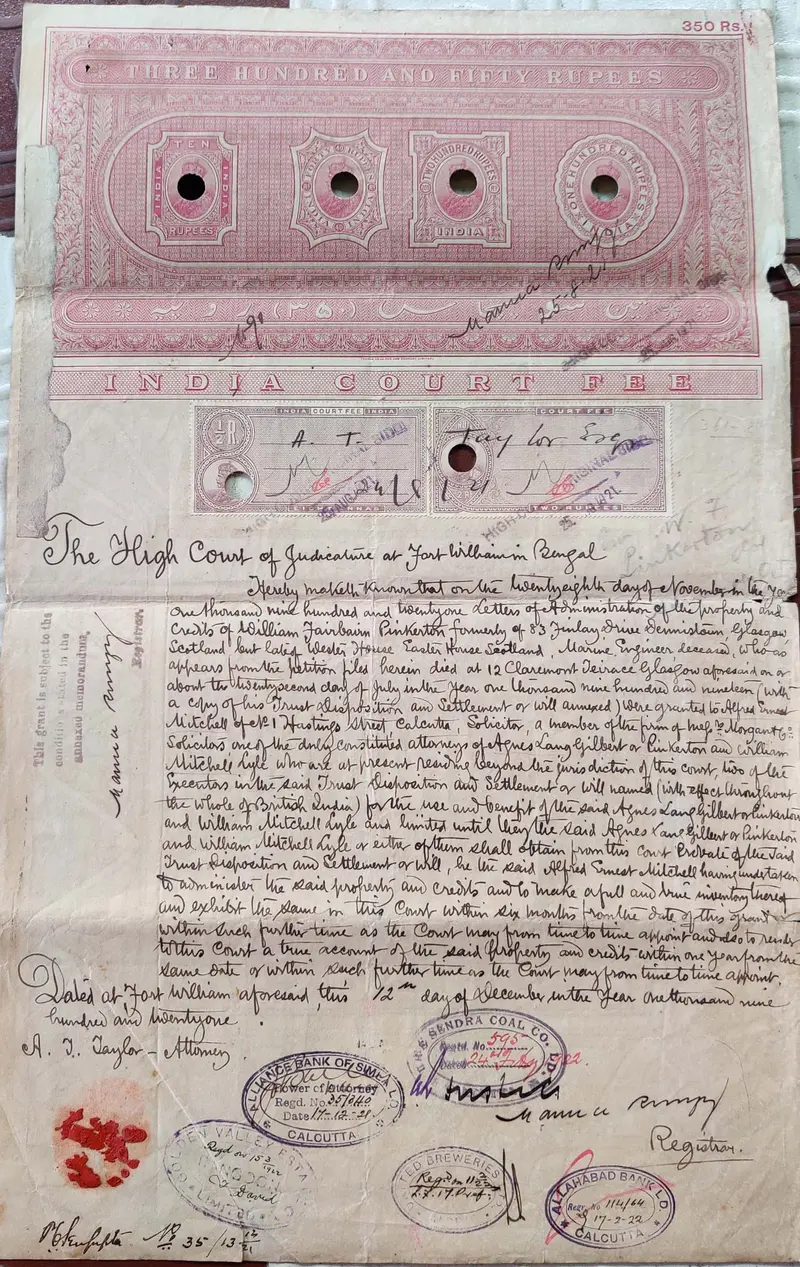 350 Rs.
THREE HUNDRED AND FIFTY RUPEES
TEN
INDIA
INDIA
RUPEES
TWO HUNDRED RUPEES
INDIA
ONE HUNDRED RUPEES
25-8-21
INDIA COURT FEE
INDIA COURT FEE INDIA
½R
A. T.
COURT FEE
Taylor Esq
TWO RUPEES
The High Court of Judicature at Fort William in Bengal
Hereby maketh known that on the twentyeighth day of November in the Year
One thousand nine hundred and twentyone Letters of Administration of the property and
Credits of William Fairbairn Pinkerton formerly of 83 Finlay Drive Dennistown, Glasgow
Scotland but late of Wester House Easter House Scotland, Marine Engineer deceased, who as
appears from the petition filed herein died at 12 Claremont Terrace Glasgow aforesaid on or
about the twentysecond day of July in the Year one thousand nine hundred and nineteen (with
a copy of his Trust Disposition and Settlement or will annexed) were granted to Alfred Ernest
Mitchell of No 1 Hastings Street, Calcutta, Solicitor, a member of the firm of Messrs Morgan & Co
Solicitors one of the duly constituted attorneys of Agnes Lang Gilbert or Pinkerton and William
Mitchell Lyle who are at present residing beyond the jurisdiction of this court, two of the
Executors in the said Trust Disposition and Settlement or Will named (with effect throughout
the whole of British India) for the use and benefit of the said Agnes Lang Gilbert or Pinkerton
and William Mitchell Lyle and limited until they the said Agnes Lang Gilbert or Pinkerton
and William Mitchell Lyle or either of them shall obtain from this Court Probate of the said
Trust Disposition and Settlement or Will, he the said Alfred Ernest Mitchell having undertaken
to administer the said property and credits and to make a full and true inventory thereof
and exhibit the same in this Court within six months from the date of this grant or
within such further time as the Court may from time to time appoint and also to render
to this Court a true account of the said property and credits within one Year from the
same date or within such further time as the Court may from time to time appoint.
Dated at Fort William aforesaid, this 12th day of December in the Year One thousand nine
hundred and twentyone.
A. T. Taylor - Attorney
This grant is subject to the
conditions stated in the
annexed memorandum.
Registrar.
SENDRA COAL CO. LTD
Regtd. No. 595
ALLIANCE BANK OF SIMLA LD.
Power of Attorney
Regd. No. 35/840
Date 17-12-21
CALCUTTA
Registrar.
Regd on 15 3
LIMITED
BREWERIES
ALLAHABAD BANK LD.
Regr. No 114/64
17-2-22
CALCUTTA
No 35/13 12/21